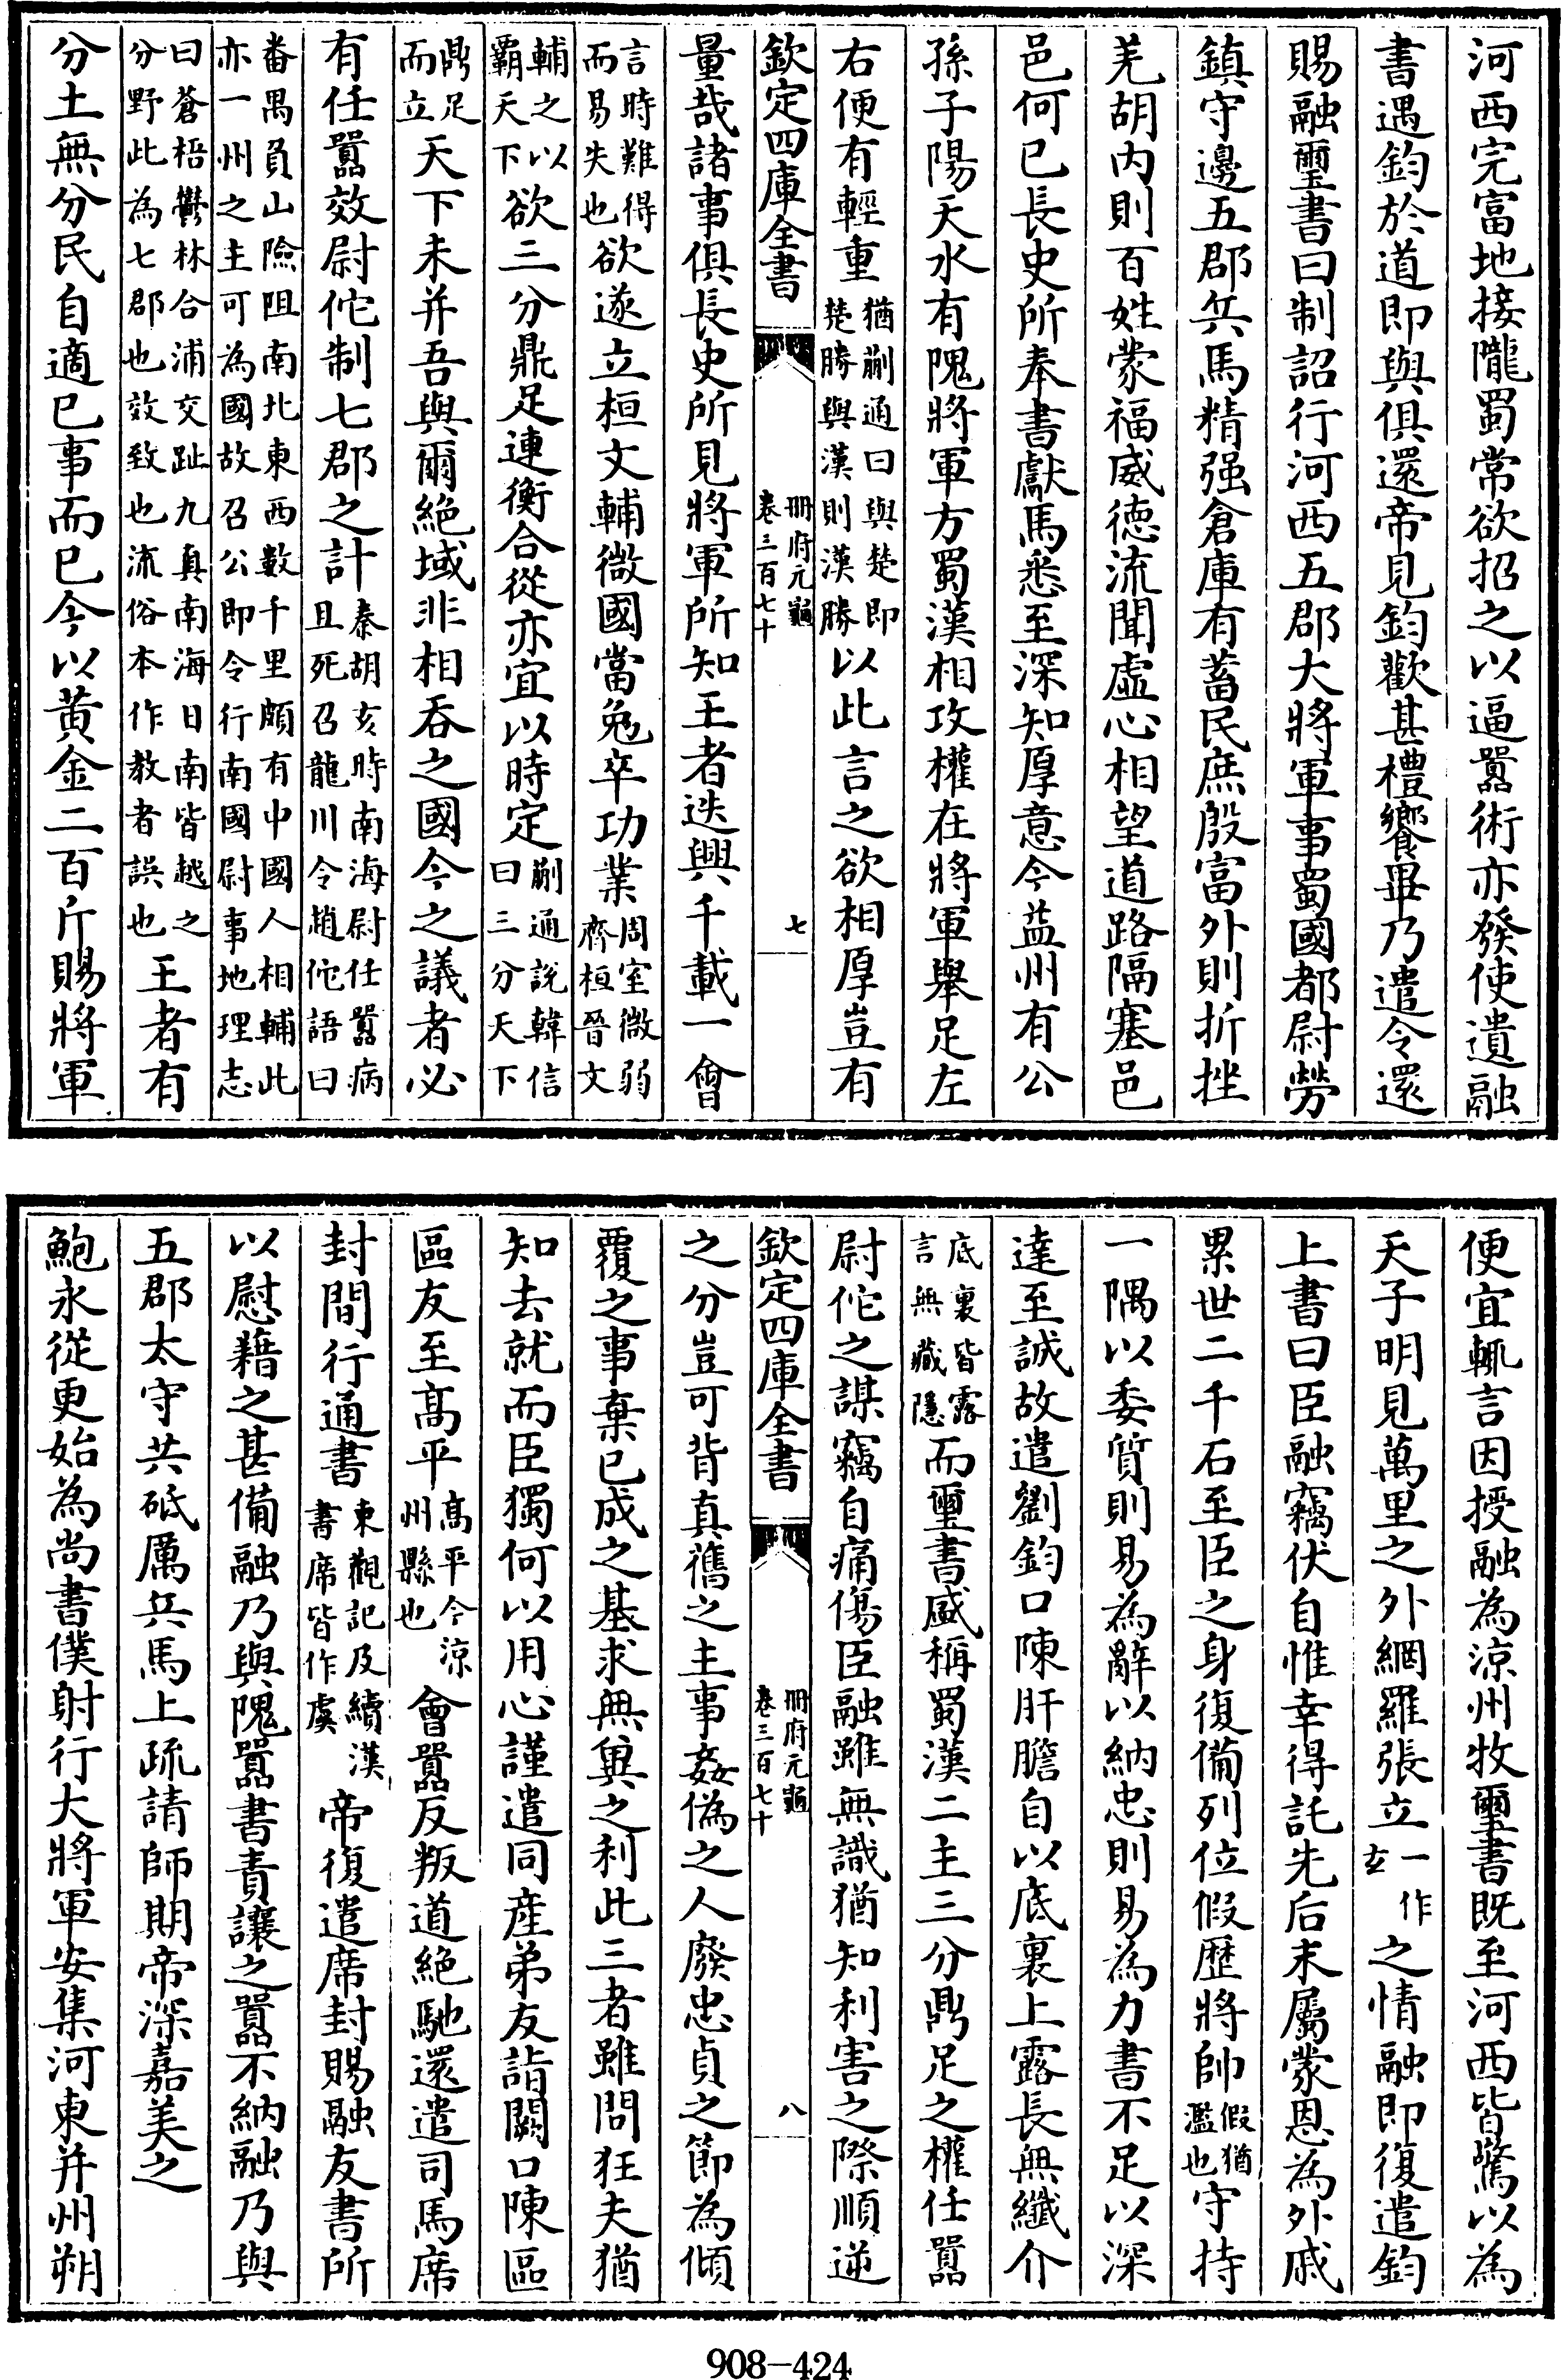 河西完富地接隴蜀常欲招之以逼囂術亦發使遺融
書遇鈞於道即與俱還帝見鈞歡甚禮饗畢乃遣令還
賜融璽書曰制詔行河西五郡大將軍事蜀國都尉勞
鎮守邊五郡兵馬精强倉庫有蓄民庶殷富外則折挫
羌胡内則百姓蒙福威德流聞虚心相望道路隔塞邑
邑何已長史所奉書獻馬悉至深知厚意今益州有公
孫子陽天水有隗將軍方蜀漢相攻權在將軍舉足左
右便有輕重猶蒯通曰與楚即楚勝與漢則漢勝以此言之欲相厚豈有
欽定四庫全書 冊府元龜卷三百七十 七
量哉諸事俱長史所見將軍所知王者迭興千載一會
言時難得而易失也欲遂立桓文輔微國當勉卒功業周室微弱齊桓晉文
輔之以霸天下欲三分鼎足連衡合從亦宜以時定蒯通說韓信曰三分天下
鼎足而立天下未并吾與爾絶域非相吞之國今之議者必
有任囂效尉佗制七郡之計秦胡亥時南海尉任囂病且死召龍川令趙佗語曰
番禺負山險阻南北東西數千里頗有中國人相輔此亦一州之主可為國故召公即令行南國尉事地理志
曰蒼梧鬱林合浦交趾九真南海日南皆越之分野此為七郡也效致也流俗本作教者誤也王者有
分土無分民自適已事而已今以黄金二百斤賜將軍
便宜輒言因授融為涼州牧璽書既至河西皆驚以為
天子明見萬里之外網羅張立一作玄之情融即復遣鈞
上書曰臣融竊伏自惟幸得託先后末屬蒙恩為外戚
累世二千石至臣之身復備列位假歴將帥假猶濫也守持
一隅以委質則易為辭以納忠則易為力書不足以深
達至誠故遣劉鈞口陳肝膽自以底裏上露長無纖介
底裏皆露言無藏隱而璽書盛稱蜀漢二主三分鼎足之權任囂
尉佗之謀竊自痛傷臣融雖無識猶知利害之際順逆
欽定四庫全書 冊府元龜卷三百七十 八
之分豈可背真舊之主事姦偽之人廢忠貞之節為傾
覆之事棄已成之基求無兾之利此三者雖問狂夫猶
知去就而臣獨何以用心謹遣同産弟友詣闕口陳區
區友至髙平髙平今涼州縣也會囂反叛道絶馳還遣司馬席
封間行通書東觀記及續漢書席皆作虞帝復遣席封賜融友書所
以慰藉之甚備融乃與隗囂書責讓之囂不納融乃與
五郡太守共砥厲兵馬上疏請師期帝深嘉美之
鮑永從更始為尚書僕射行大將軍安集河東并州朔
908-424